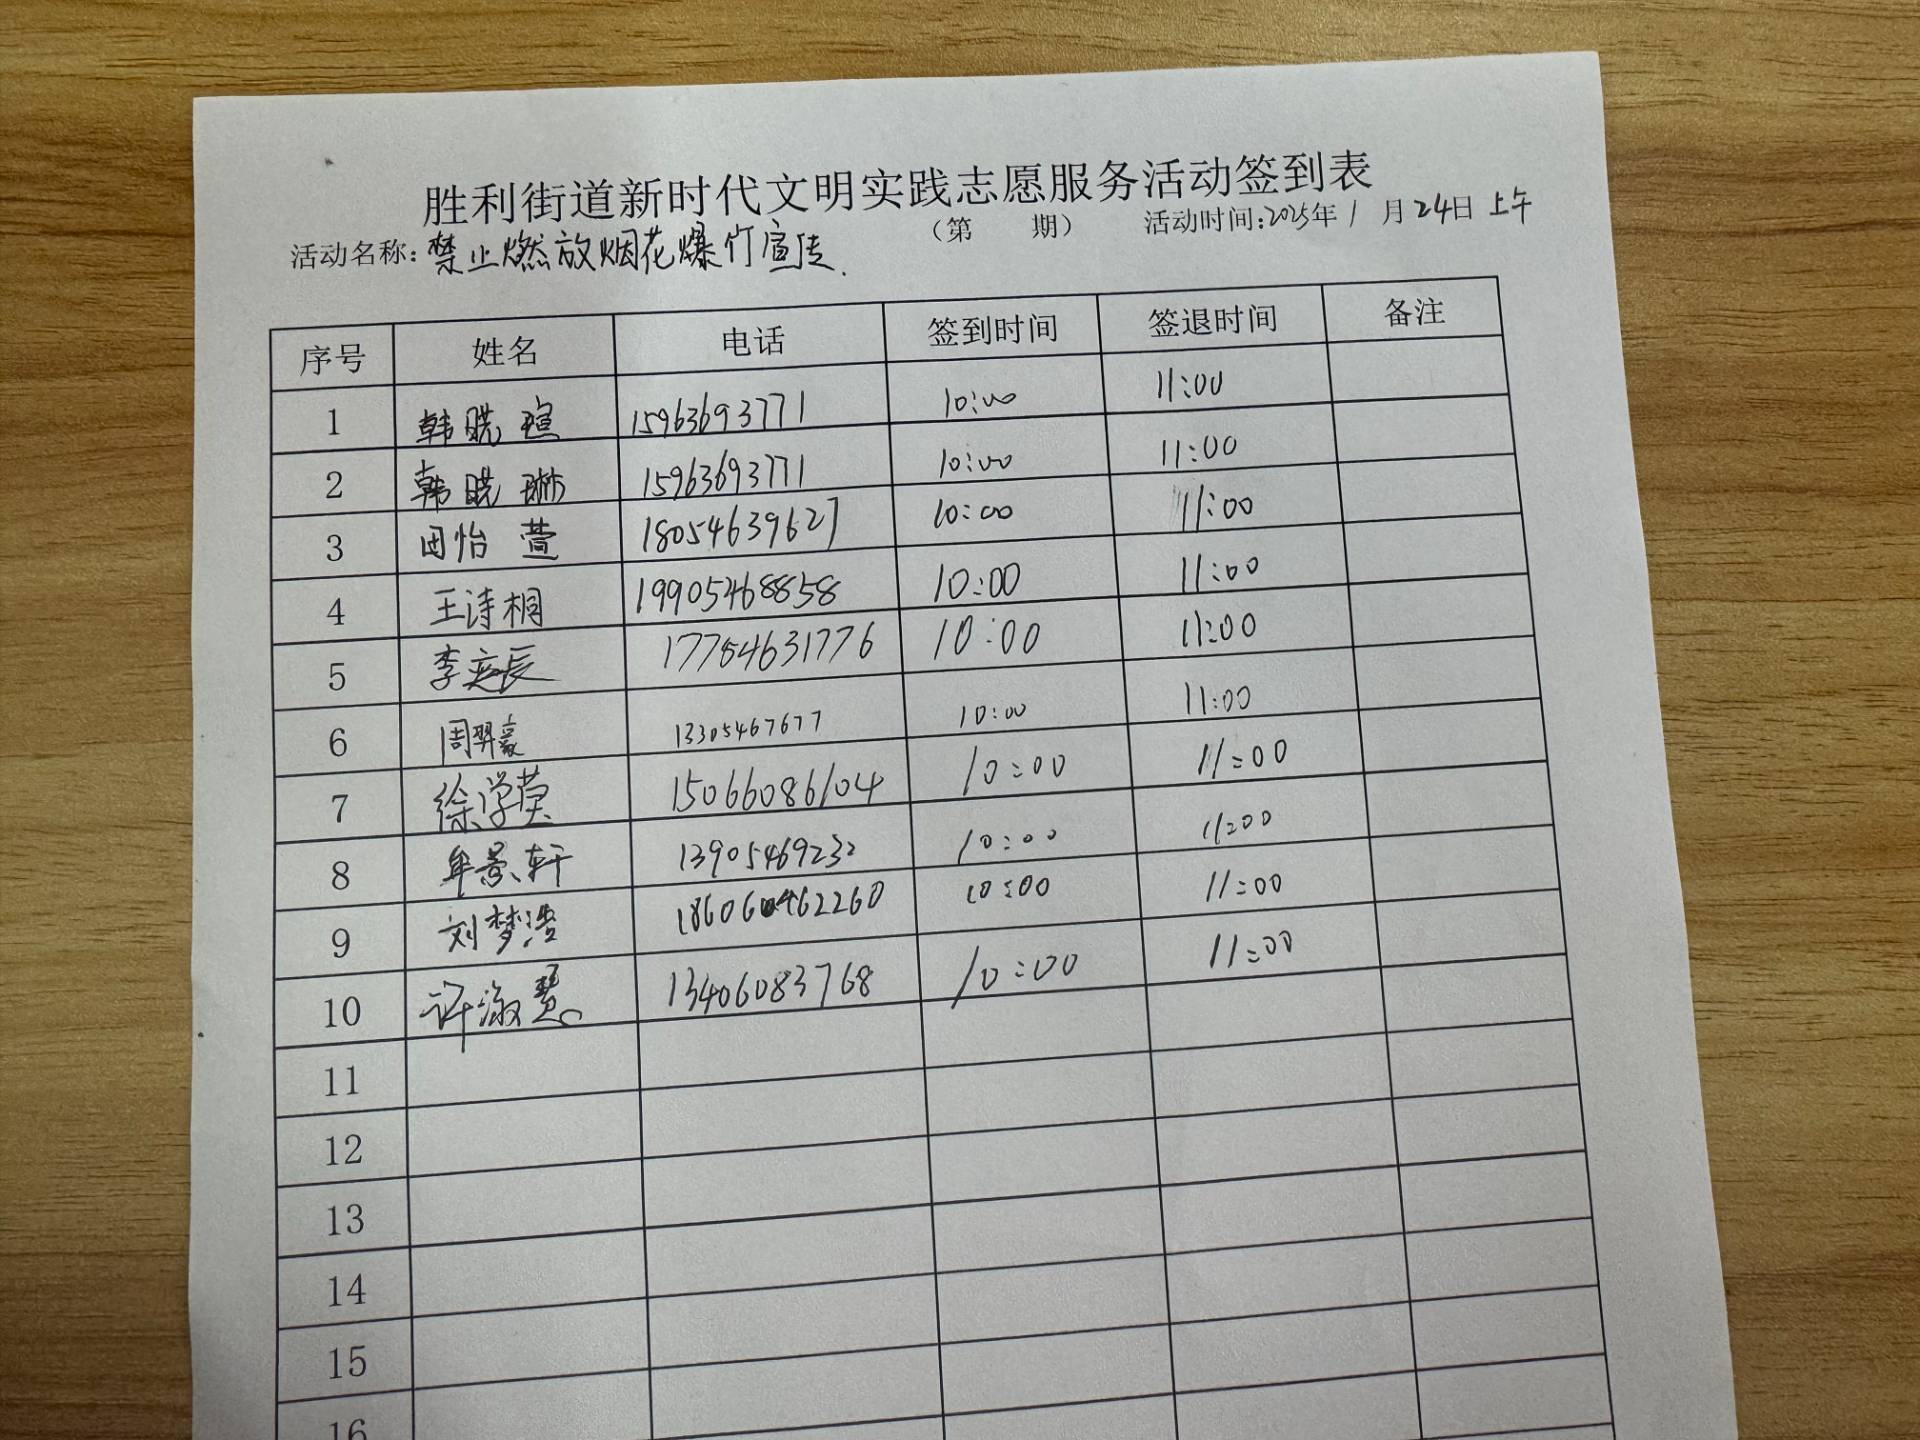 胜利街道新时代文明实践志愿服务活动签到表
（第 期） 活动时间:2025年1月24日 上午
活动名称:禁止燃放烟花爆竹宣传.
序号 姓名 电话 签到时间 签退时间 备注
1 韩晓瑄 15963693771 10:00 11:00
2 韩晓琳 15963693771 10:00 11:00
3 田怡萱 18054639627 10:00 11:00
4 王诗桐 19905468858 10:00 11:00
5 李奕辰 17754631776 10:00 11:00
6 周羿豪 13305467677 10:00 11:00
7 徐学莫 15066086104 10:00 11:00
8 牟景轩 13905469232 10:00 11:00
9 刘梦浩 10:00 11:00
10 许淑慧 13406083768 10:00 11:00
11
12
13
14
15
16